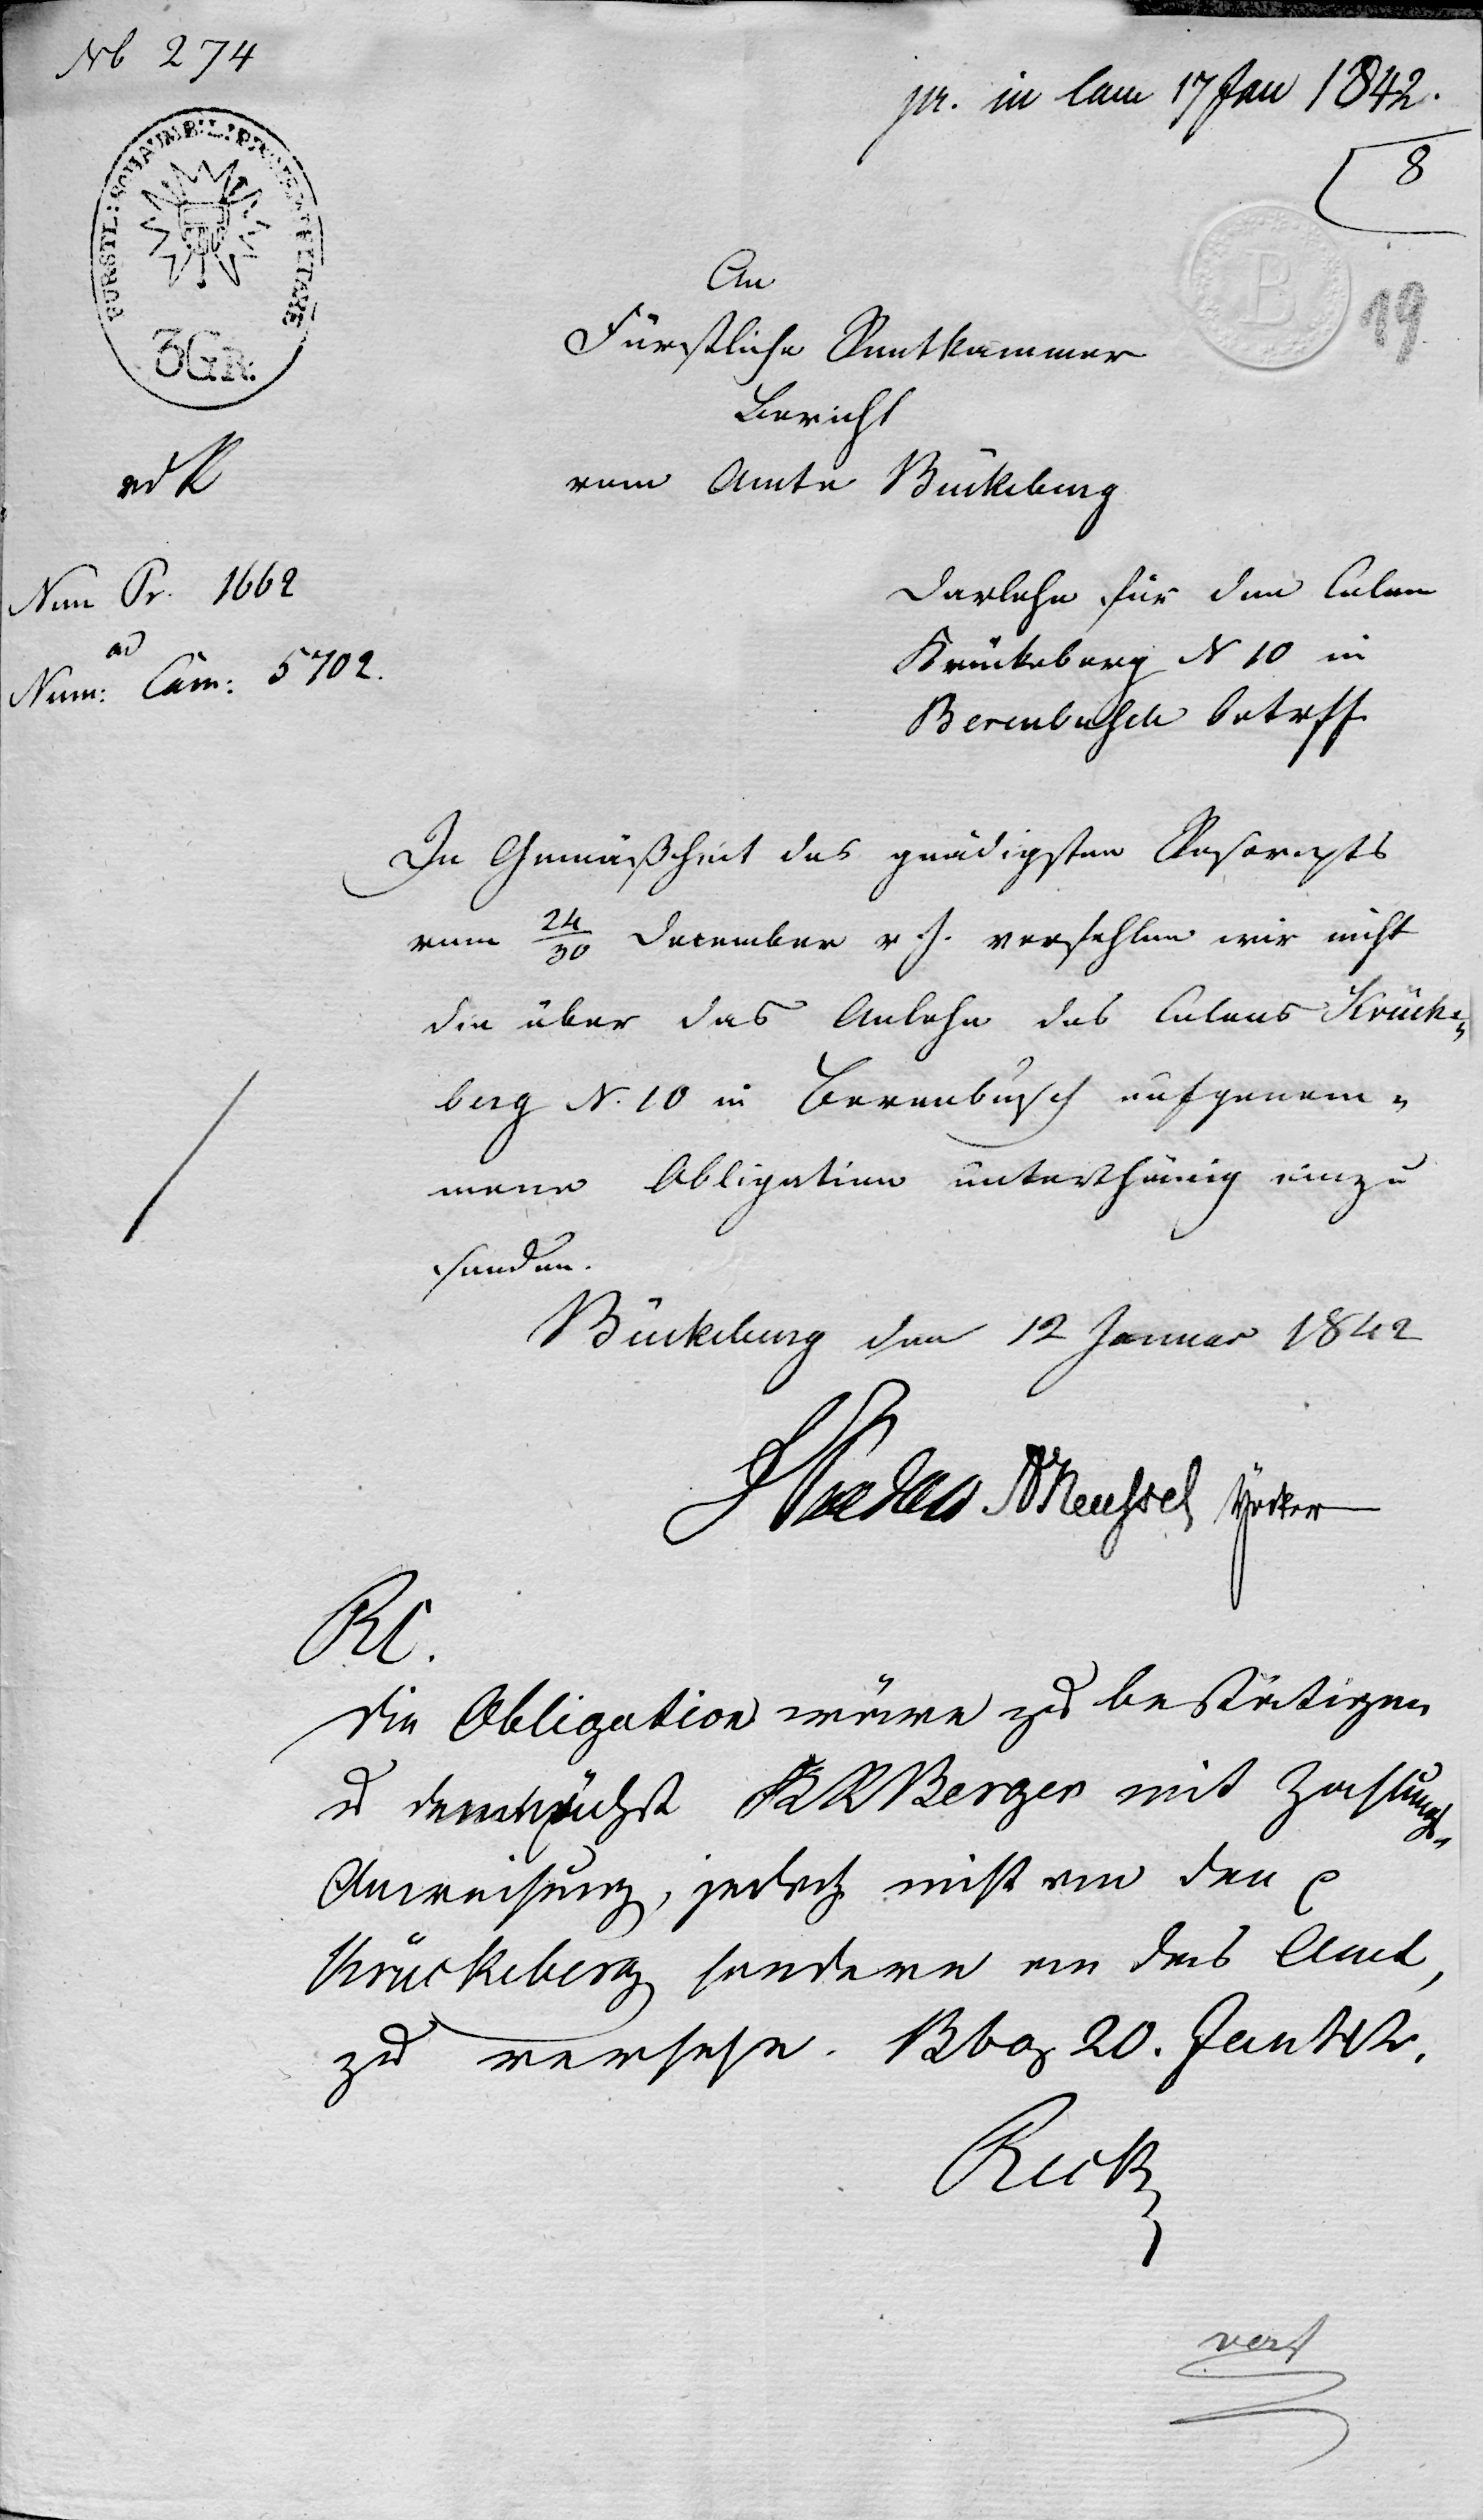 No 274
pr. in Cam 17 Jan 1842.
8
19
B
FÜRSTL: SCHAUMB: L:
3 GR.
An
Fürstliche Rentkammer
Bericht
vom Amte Bückeburg
Num Pr. 1662
ad
Num: Cam: 5702.
Darlehn für den Colon
Krückeberg N 10 in
Berenbusch betreff
In Gemäßheit des gnädigsten Rescripts
vom 24/30 December v. J. verfehlen wir nicht
die über das Anlehn des Colons Krücke„
berg N. 10 in Berenbusch aufgenom„
mene Obligation unterthänig einzu
senden.
Bückeburg den 12 Januar 1842
RC.
Die Obligation wäre zu bestätigen
u demnächst Berger mit Zahlungs„
Anweisung, jedoch nicht an den p
Krückeberg sondern an das Amt,
zu versehn. Bbg 20. Jan 42.